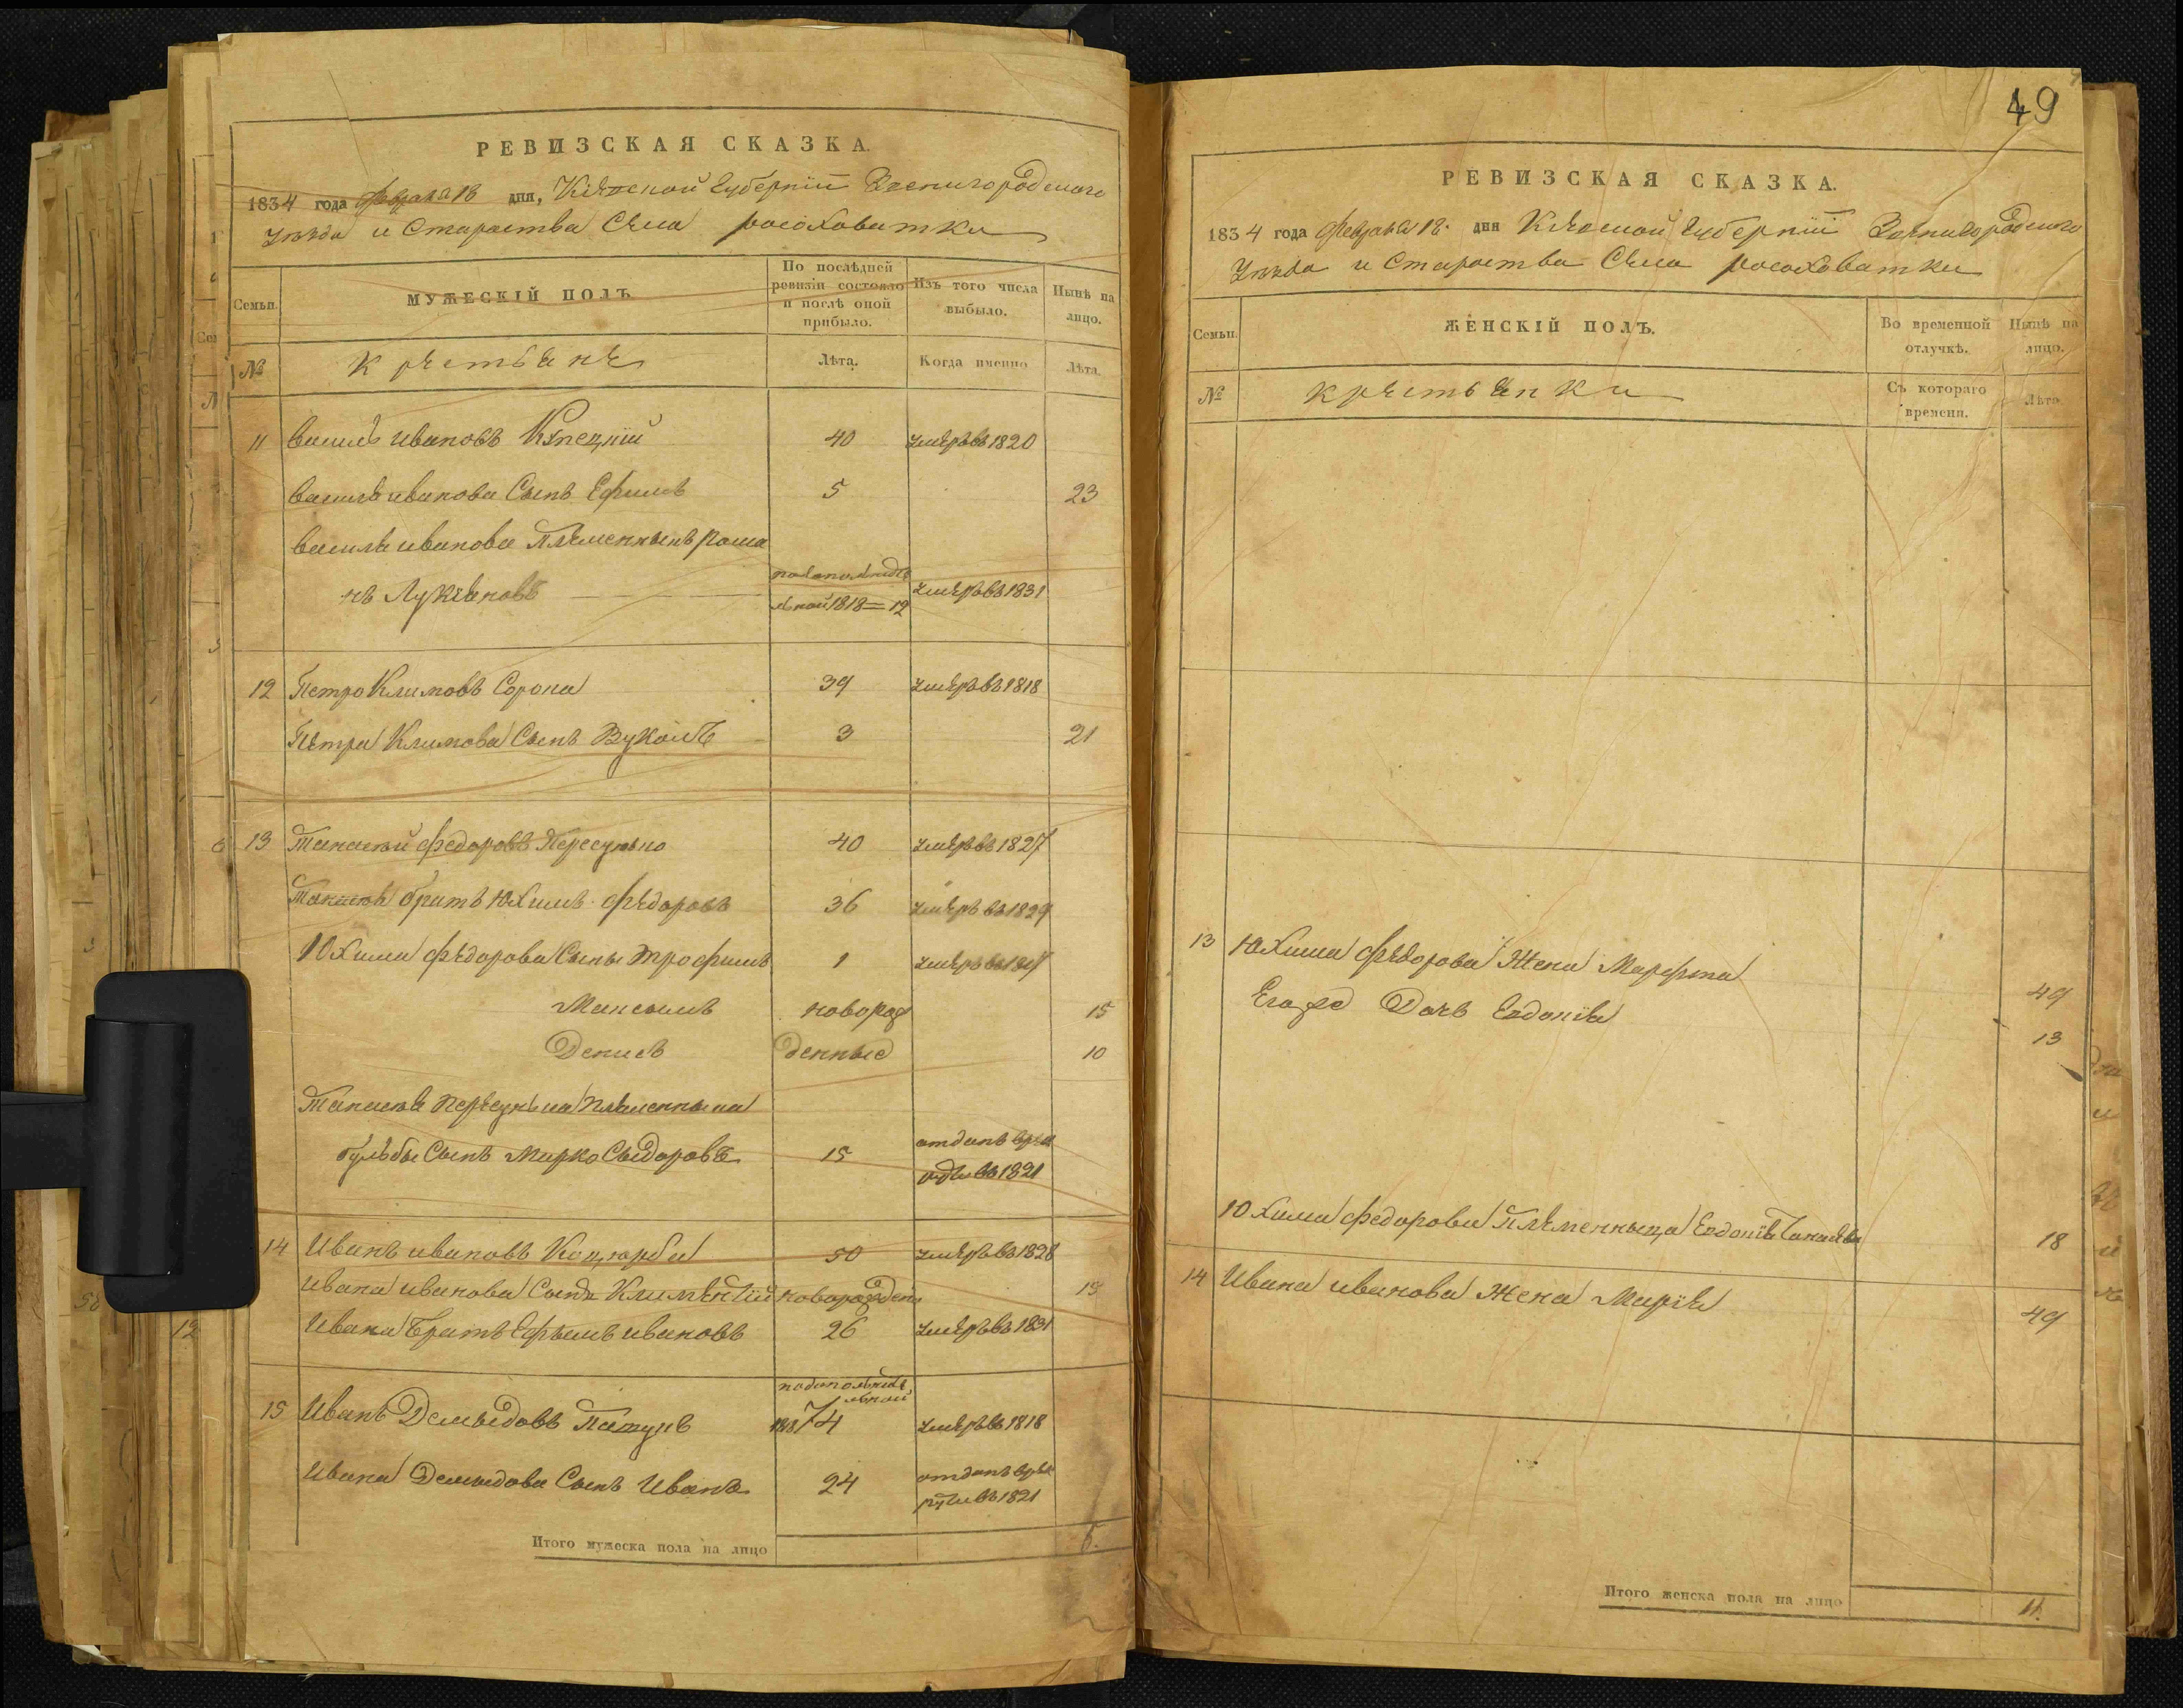 РЕВИЗСКАЯ СКАЗКА.
1834 года февраля 18 дня, Кіевской Губерніи Звенигородского
уезда и Староства Села росоховатки
Семьи.
МУЖЕСКІЙ ПОЛЪ
По послѣдней ревизіи состояло и послѣ оной прибыло.
Изъ того числа выбыло.
Нынѣ на лицо.
№
крестьяне
Лѣта.
Когда именно
Лѣта.
11 василь ивановъ 40 умеръ въ 1820
василя иванова Сынъ Ефимъ 5 23
василя иванова племенныкъ рома
нъ Лукяновъ 1818 = 12 умеръ въ 1831
12 Петро Климовъ Сорока 39 умеръ въ 1818
Петра Климова Сынъ Вуколъ 3 21
13 Танасій федоровъ 40 умеръ въ 1827
братъ Юхимъ федоровъ 36 умеръ въ 1829
Юхима федорова Сыны Трофимъ 1 умеръ въ
Максымъ новорож 15
Денисъ денные 10
Танасія племенныка
Сынъ Марко Сыдоровъ 15 отданъ въ
въ 1821
14 Иванъ ивановъ Коцюрба 50 умеръ въ 1828
Ивана иванова Сынъ Климентій новорожден
Ивана братъ Ефымъ ивановъ 26 умеръ въ 1831
15 Иванъ Демыдовъ 74 умеръ въ 1818
Ивана Демыдова Сынъ Иванъ 24 отданъ въ
въ 1821
Итого мужеска пола на лицо 5.
49
РЕВИЗСКАЯ СКАЗКА.
1834 года февраля 18 дня Кіевской Губерніи Звенигородского
уезда и Староства Села росоховатки
Семьи.
ЖЕНСКІЙ ПОЛЪ.
Во временной отлучкѣ.
Нынѣ на лицо.
№
крестьянки
Съ котораго времени.
Лѣта
13 Юхима федорова Жена Марфта 49
Дочь Евдокія 13
Юхима федорова племенныца Евдокія 18
14 Ивана иванова Жена Марія 49
Итого женска пола на лицо